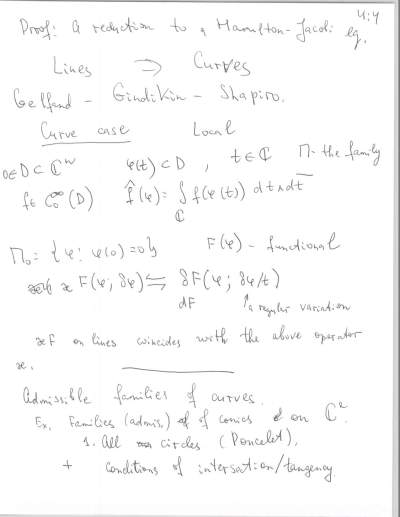 4:4
Proof: a reduction to a Hamilton-Jacobi eq.
Lines ⊃ Curves
Gelfand - Gindikin - Shapiro.
Curve case Local
0∈D⊂ℂⁿ φ(t)⊂D, t∈ℂ Π - the family
f∈ C₀^∞(D) f̂(φ)= ∫_ℂ f(φ(t)) dt∧dt̄
Π₀= {φ: φ(0)=0} F(φ) - functional
ϰ F(φ; δφ) ⇆ δF(φ; δφ/t)
dF ↑a regular variation
ϰF on lines coincides with the above operator
ϰ.
Admissible families of curves.
Ex. Families (admis.) of conics on ℂ².
1. All circles (Poncelet),
+ conditions of intersection/tangency.